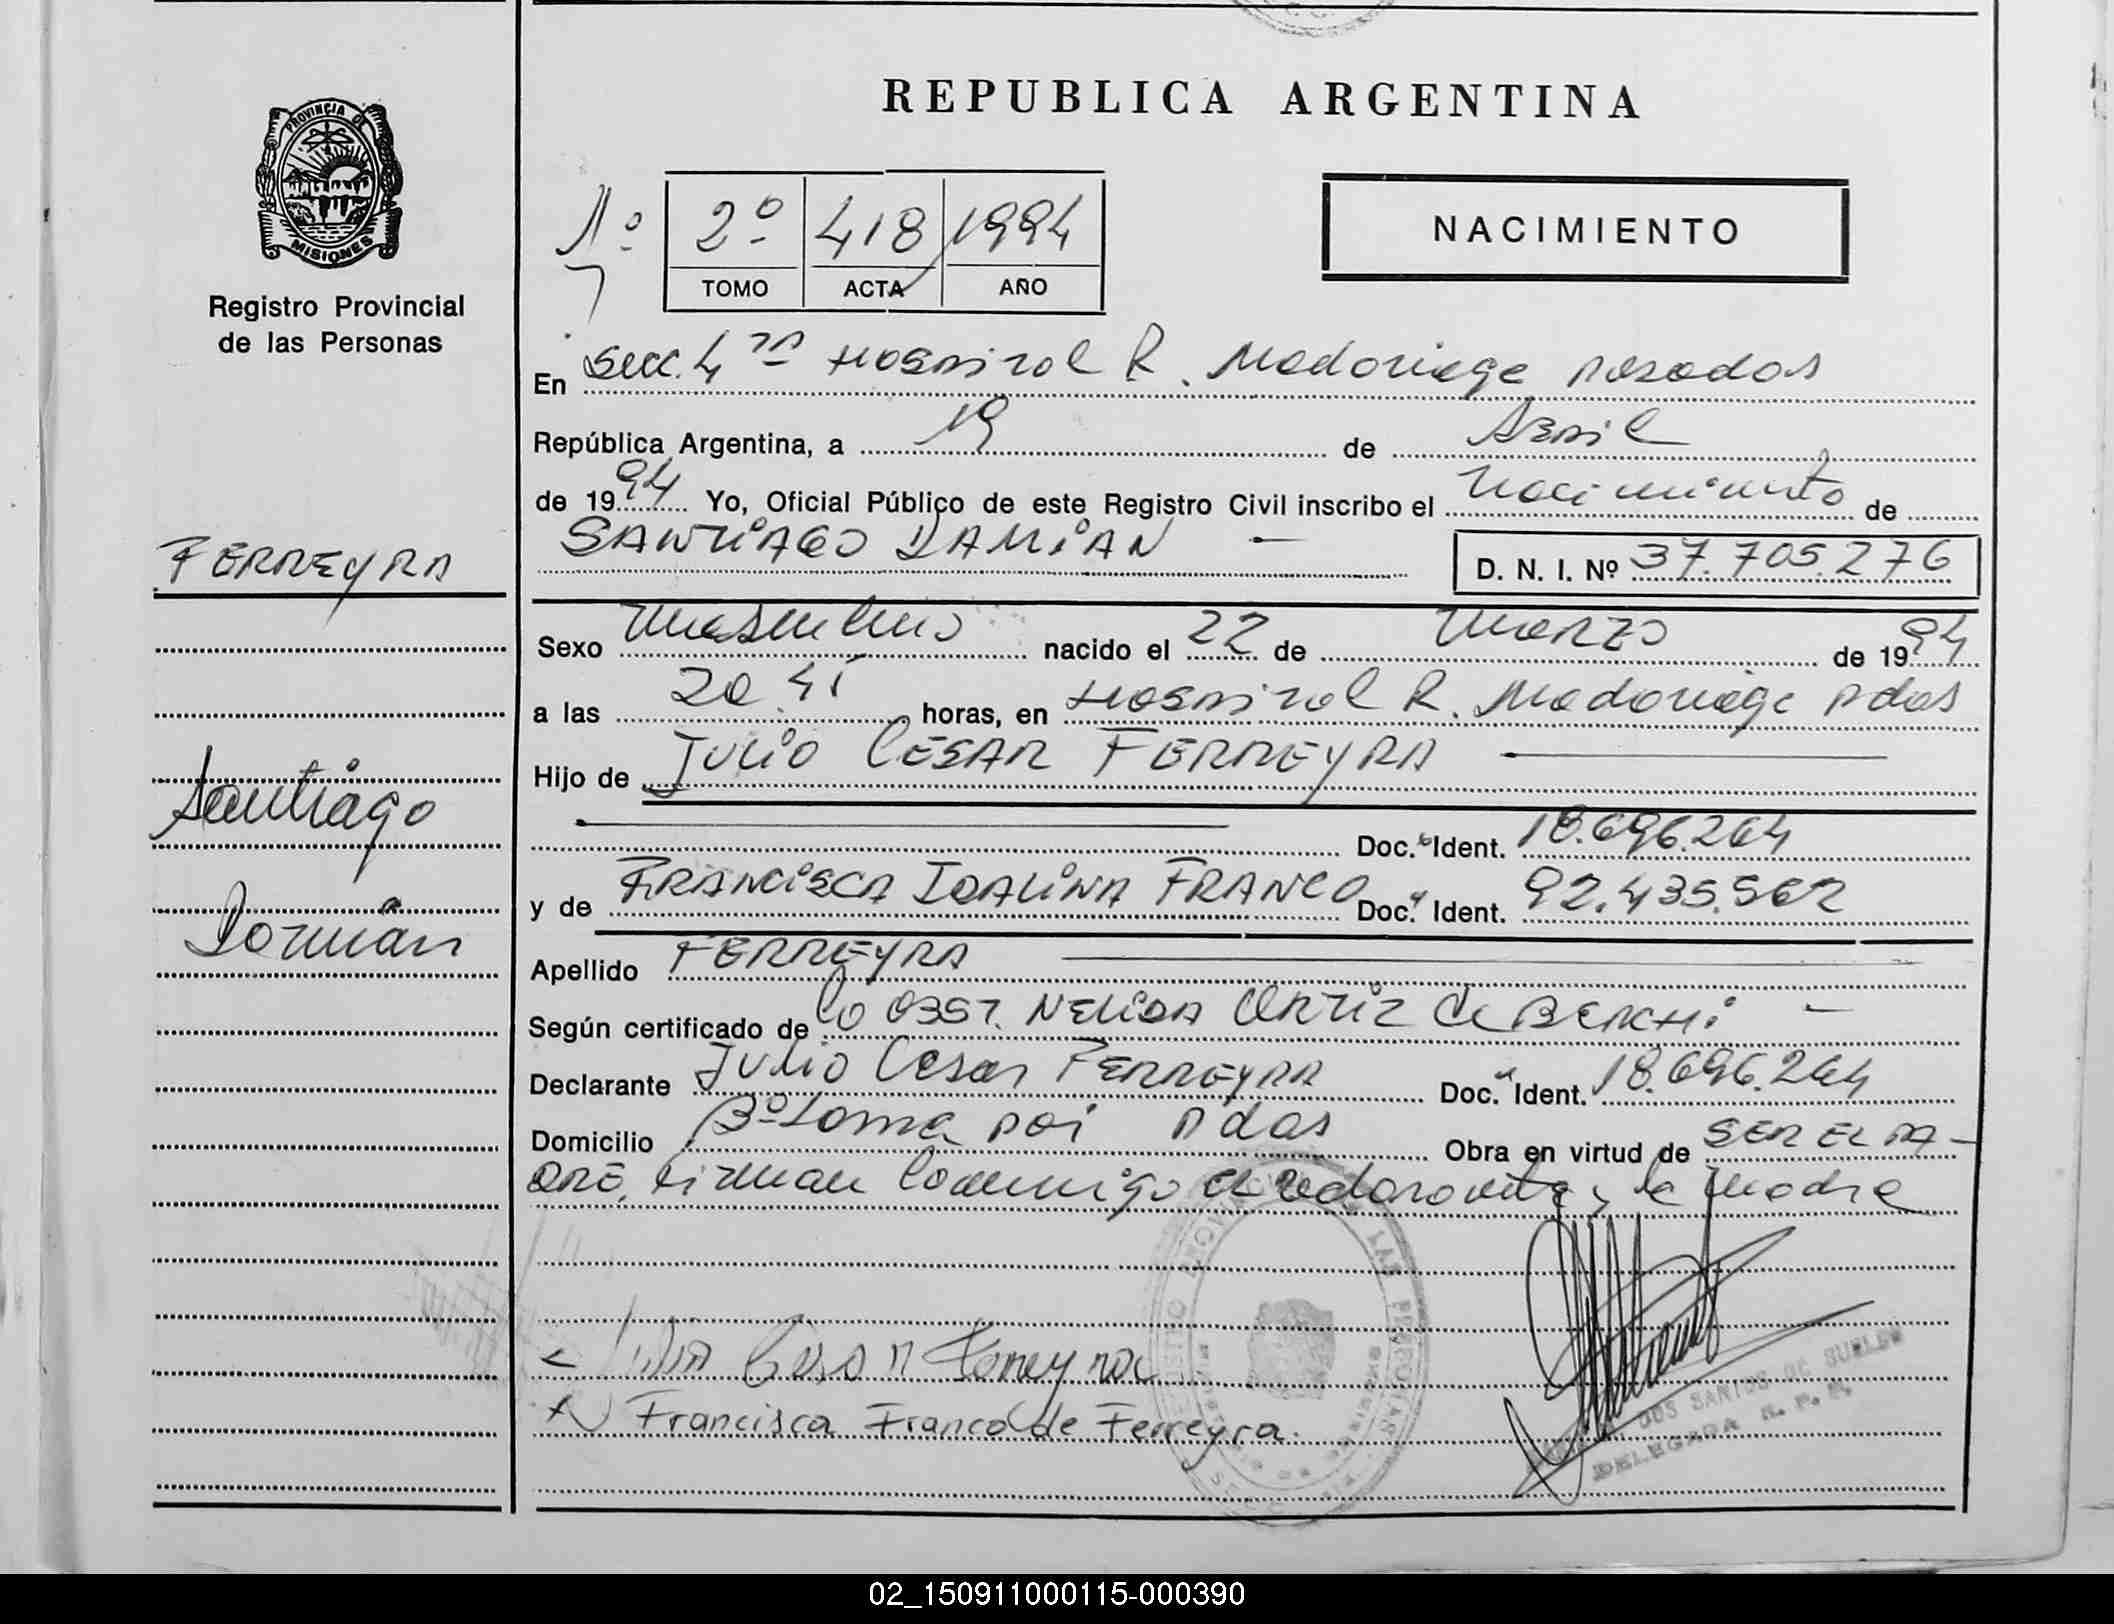 REPUBLICA ARGENTINA
PROVINCIA DE
MISIONES
Registro Provincial
de las Personas
1º 2º 418 1994
TOMO ACTA AÑO
NACIMIENTO
En Secc. 4ta Hospital R. Madariaga Posadas
República Argentina, a 19 de Abril
de 1994 Yo, Oficial Público de este Registro Civil inscribo el Nacimiento de
SANTIAGO DAMIAN — D. N. I. Nº 37.705.276
FERREYRA
Sexo Masculino nacido el 22 de Marzo de 1994
a las 20.45 horas, en Hospital R. Madariaga Pdas
Hijo de JULIO CESAR FERREYRA
Santiago
Damián
Doc. Ident. 18.696.264
y de FRANCISCA IDALINA FRANCO Doc. Ident. 92.435.562
Apellido FERREYRA
Según certificado de la OBST. NELIDA ORTIZ de BERCHI —
Declarante Julio Cesar FERREYRA Doc. Ident. 18.696.264
Domicilio Bº Loma Poi Pdas Obra en virtud de SER EL PA-
DRE. Firman Conmigo el declarante y la Madre
Julio Cesar Ferreyra
Francisca Franco de Ferreyra.
REGISTRO PROVINCIAL DE LAS PERSONAS
DOS SANTOS DE
DELEGADA R. P. P.
02_150911000115-000390